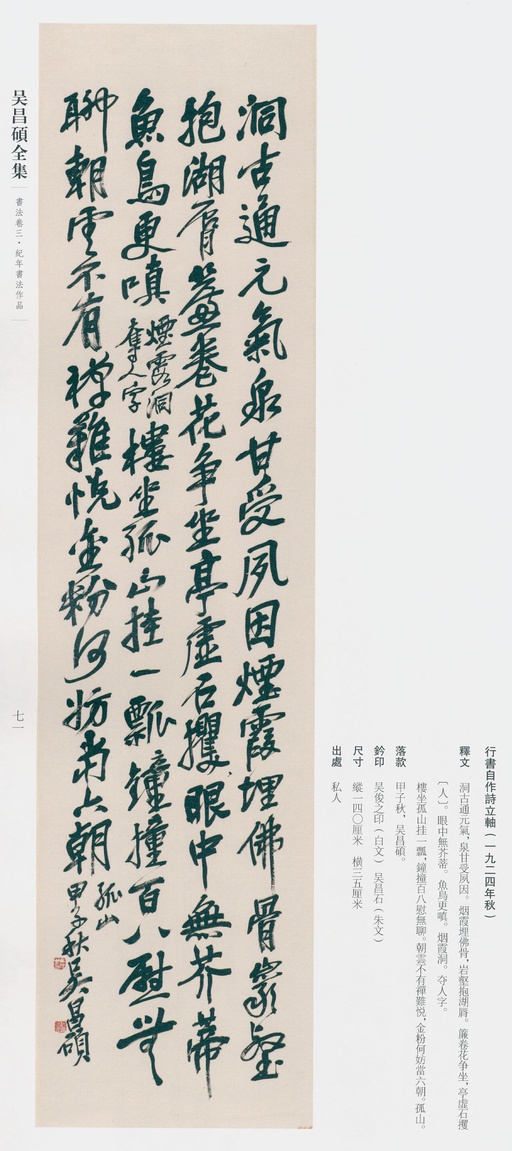 洞古通元氣泉甘受夙因煙霞埋佛骨巖壑
抱湖脣簾卷花争坐亭虛石攫眼中無芥蒂
魚鳥更嗔煙霞洞奪人字樓坐孤山挂一瓢鐘撞百八慰無
聊朝雲不有禅難悦金粉何妨當六朝孤山甲子秋吴昌碩
行書自作詩立軸（一九二四年秋）
釋文 洞古通元氣，泉甘受夙因。烟霞埋佛骨，岩壑抱湖脣。簾卷花争坐，亭虛石攫
〔人〕。眼中無芥蒂。魚鳥更嗔。烟霞洞。夺人字。
樓坐孤山挂一瓢，鐘撞百八慰無聊。朝雲不有禪難悦，金粉何妨當六朝。孤山。
落款 甲子秋，吴昌碩。
鈐印 吴俊之印（白文） 吴昌石（朱文）
尺寸 縱一四〇厘米 横三五厘米
出處 私人
吴昌碩全集
書法卷三·紀年書法作品
七一